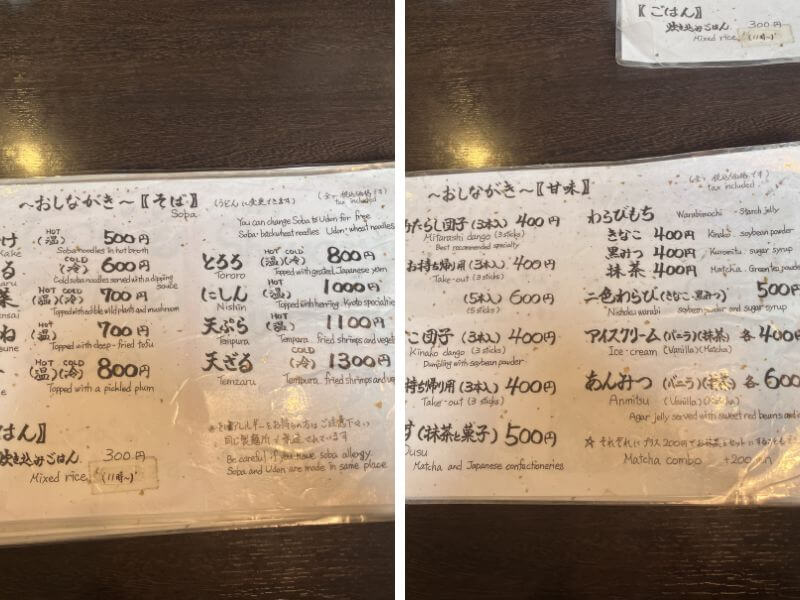 ～おしながき～【そば】
Soba
(うどんに変更できます)
(全て税込価格です)
tax included
You can change Soba to Udon for free
Soba・buckwheat noodles Udon・wheat noodles
け HOT (温) 500円
Kake Soba noodles in hot broth
る COLD (冷) 600円
Cold soba noodles served with a dipping sauce
菜 HOT COLD (温)(冷) 700円
Topped with edible wild plants and mushroom
ね HOT (温) 700円
Topped with deep-fried tofu
HOT COLD (温)(冷) 800円
Topped with a pickled plum
とろろ HOT COLD (温)(冷) 800円
Tororo Topped with grated Japanese yam
にしん HOT (温) 1000円
Nishin Topped with herring・Kyoto
天ぷら HOT (温) 1100円
Tenpura Tempura fried shrimps and
天ざる COLD (冷) 1300円
Temzaru Tempura fried shrimps and
ごはん】
炊き込みごはん 300円
Mixed rice (11時～)
Be careful if you have soba allergy.
Soba and Udon are made in same place
【ごはん】
炊き込みごはん 300円
Mixed rice (11時～)
～おしながき～【甘味】
(全て税込価格です)
tax included
みたらし団子(3本入) 400円
Mitarashi dango (3 sticks)
Best recommended specialty
お持ち帰り用(3本入) 400円
Take-out (3 sticks)
(5本入) 600円
(5 sticks)
こ団子(3本入) 400円
Kinako dango (3 sticks)
Dumpling with soybean powder
持ち帰り用(3本入) 400円
Take-out (3 sticks)
す(抹茶と菓子) 500円
Ousu
Matcha and Japanese confectioneries
わらびもち Warabimochi・Starch jelly
きなこ 400円 Kinako・soybean powder
黒みつ 400円 Kuromitu・sugar syrup
抹茶 400円 Matcha・Green tea powder
二色わらび(きなこ・黒みつ) 500円
Nishoku warabi soybean powder and sugar syrup
アイスクリーム(バニラ)(抹茶) 各400円
Ice-cream (Vanilla)(Matcha)
あんみつ(バニラ)(抹茶) 各600
Anmitsu (Vanilla)(Matcha)
Agar jelly served with sweet red beans and
☆それぞれにプラス200円でお抹茶とセットにする
Matcha combo +200